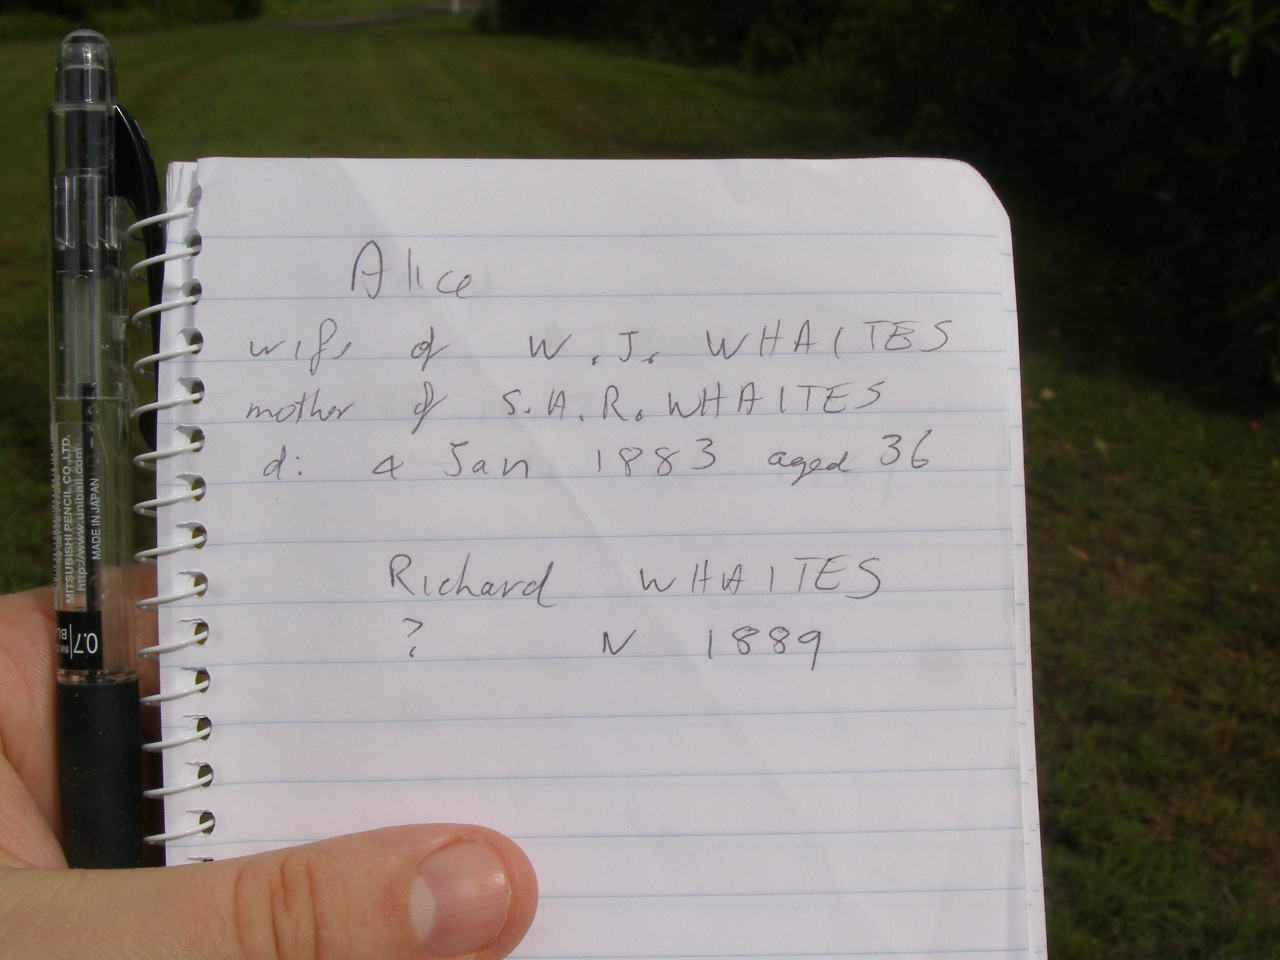 Alice
wife of W.J. WHAITES
mother of S.A.R. WHAITES
d: 4 Jan 1883 aged 36
Richard WHAITES
? N 1889
MITSUBISHI PENCIL CO.,LTD.
http://www.uniball.com
MADE IN JAPAN
0.7